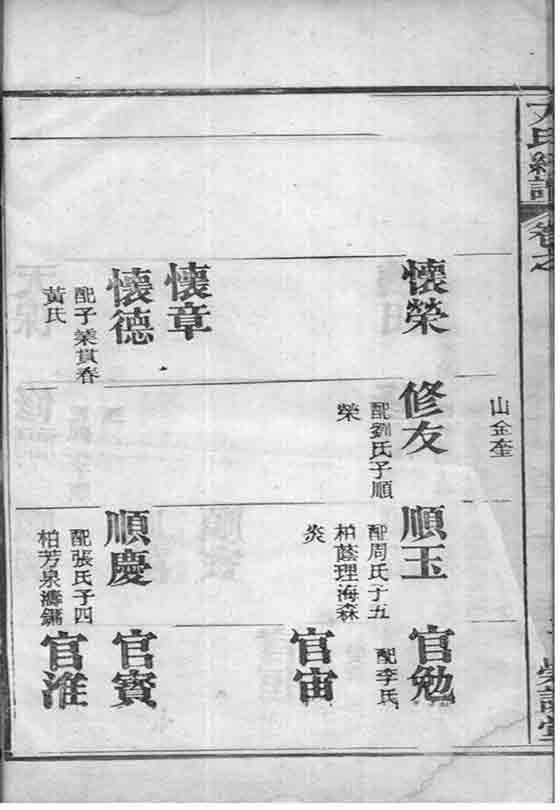 丁氏
卷之
山金奎
懷榮
修友
配劉氏子順
榮
順玉
配周氏子五
柏蔭理海森
炎
官勉
配李氏
官宙
懷章
懷德
配子業春
黃氏
順慶
配張氏子四
柏芳泉濤鏞
官賓
官淮